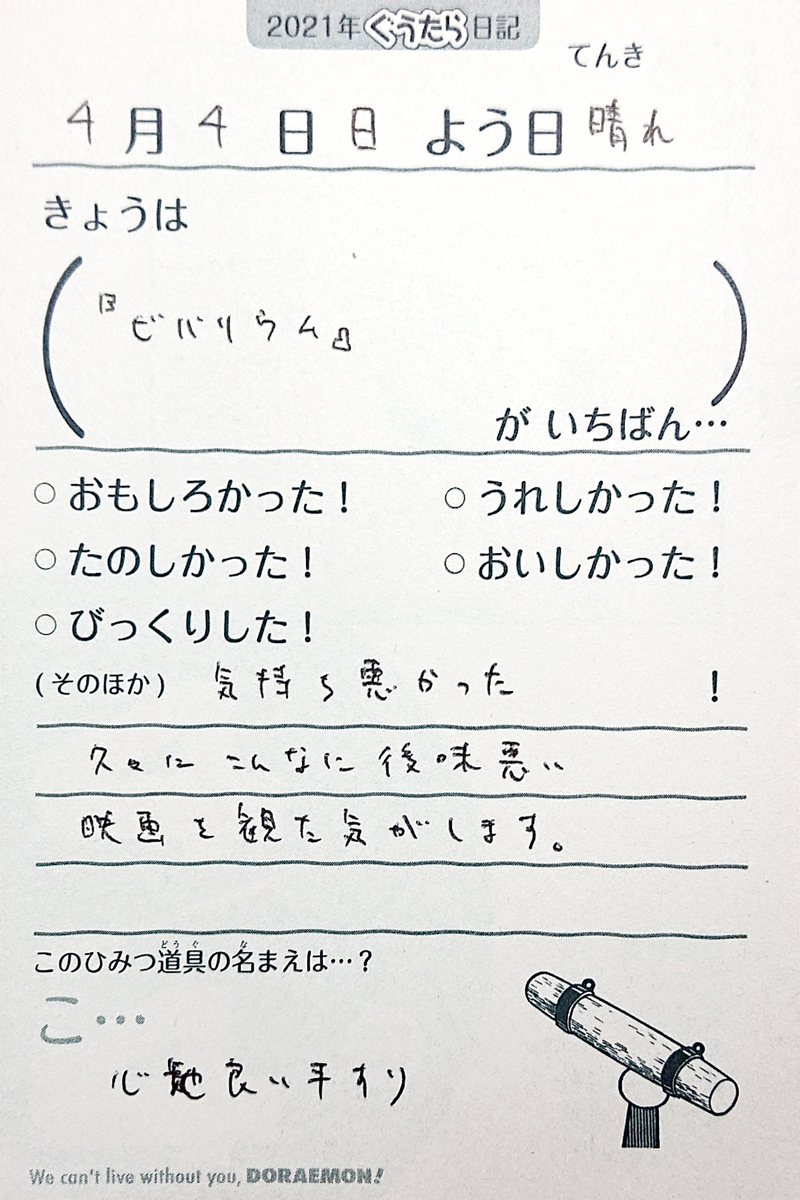 2021年ぐうたら日記
てんき
4月4日日よう日晴れ
きょうは
『ビバリウム』
がいちばん…
○おもしろかった！ ○うれしかった！
○たのしかった！ ○おいしかった！
○びっくりした！
(そのほか) 気持ち悪かった！
久々にこんなに後味悪い
映画を観た気がします。
どうぐ な
このひみつ道具の名まえは…？
こ…
心地良い手すり
We can't live without you, DORAEMON!